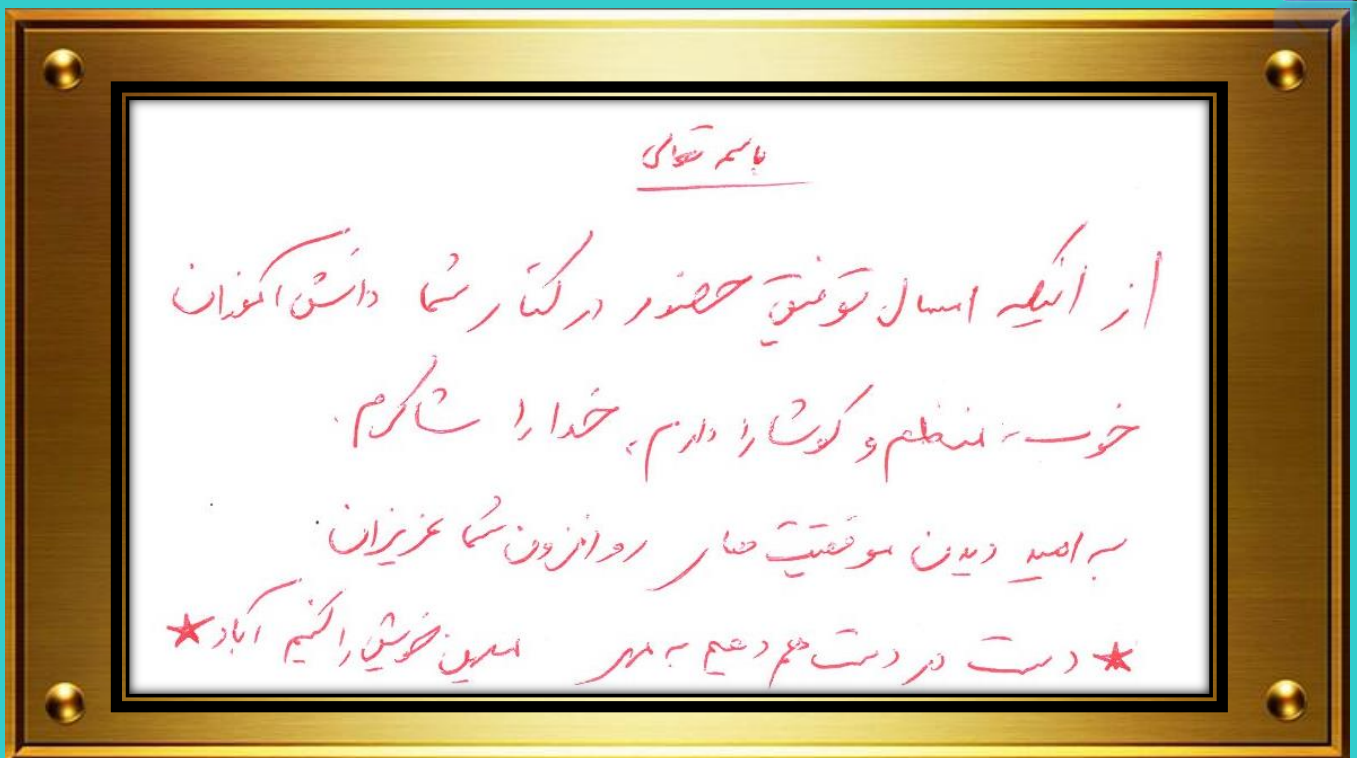 باسمه تعالی
از اینکه امسال توفیق حضور در کنار شما دانش آموزان
خوب، منظم و کوشا را دارم، خدا را شاکرم.
به امید دیدن موفقیت های روزافزون شما عزیزان.
★ دست در دست هم دهیم به مهر میهن خویش را کنیم آباد ★